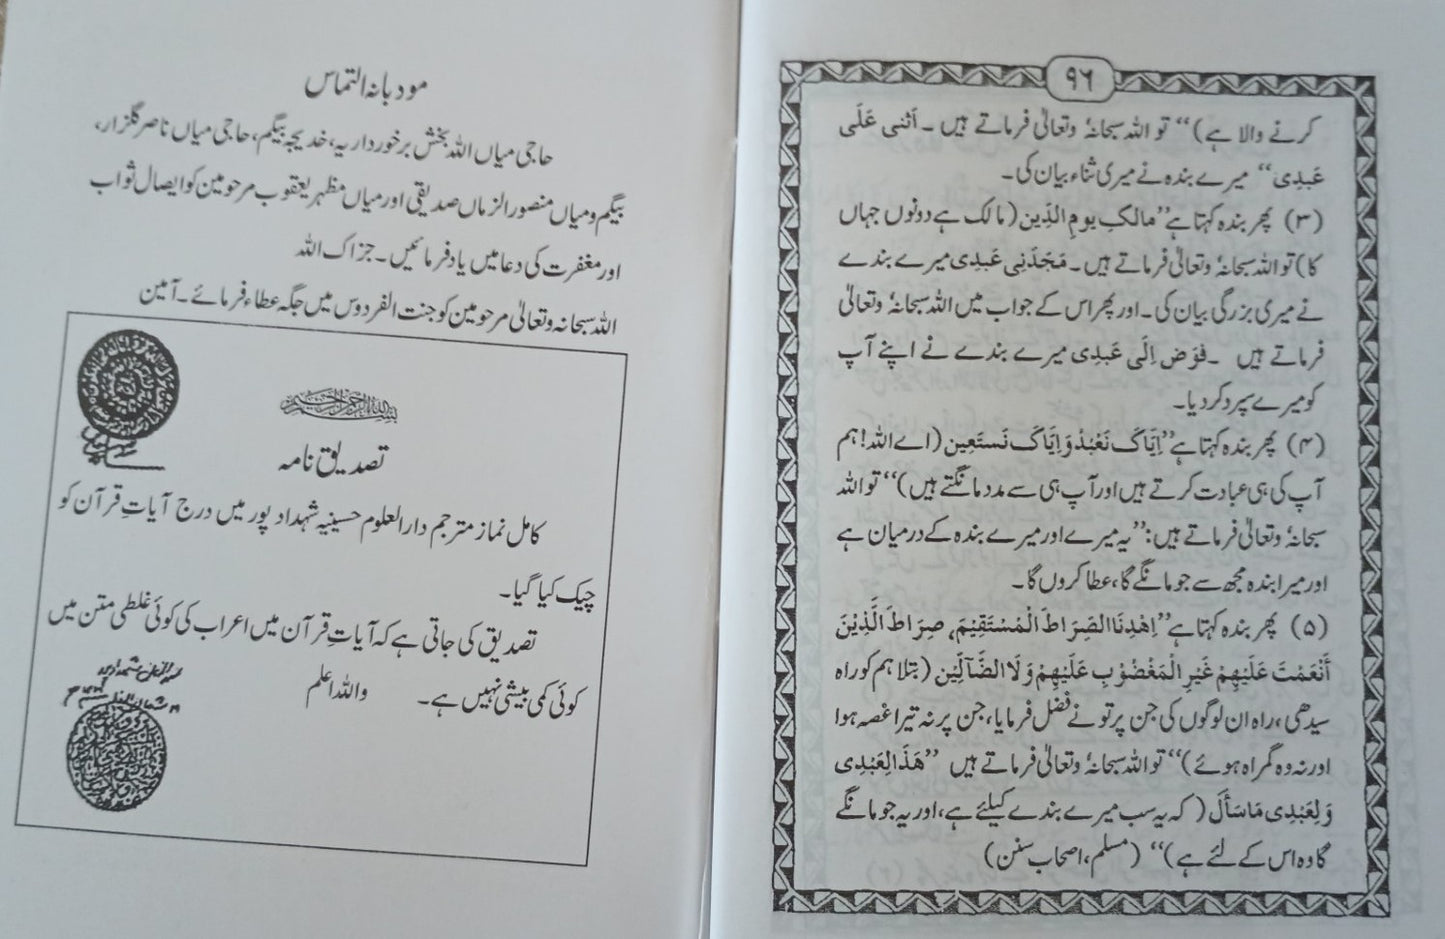 ۹۶
کرنے والا ہے)‘‘ تو اللہ سبحانہٗ وتعالیٰ فرماتے ہیں ۔ اَثنی عَلَی
عَبدِی‘‘ میرے بندہ نے میری ثناء بیان کی۔
(۳) پھر بندہ کہتا ہے’’مالکِ یومِ الدّین (مالک ہے دونوں جہاں
کا) تو اللہ سبحانہٗ وتعالیٰ فرماتے ہیں۔ مَجّدَنِی عَبدِی میرے بندے
نے میری بزرگی بیان کی۔ اور پھر اس کے جواب میں اللہ سبحانہٗ وتعالیٰ
فرماتے ہیں ۔فوّض اِلَی عَبدِی میرے بندے نے اپنے آپ
کو میرے سپرد کردیا۔
(۴) پھر بندہ کہتا ہے’’اِیَّاکَ نَعْبُدُ وَاِیَّاکَ نَستَعِین (اے اللہ! ہم
آپ کی ہی عبادت کرتے ہیں اور آپ ہی سے مدد مانگتے ہیں)‘‘ تو اللہ
سبحانہٗ وتعالیٰ فرماتے ہیں: ’’یہ میرے اور میرے بندہ کے درمیان ہے
اور میرا بندہ مجھ سے جو مانگے گا، عطا کروں گا۔
(۵) پھر بندہ کہتا ہے’’اِھْدِنَا الصِّرَاطَ الْمُسْتَقِیْمَ، صِرَاطَ الَّذِیْنَ
أَنْعَمْتَ عَلَیْھِمْ غَیْرِ الْمَغْضُوْبِ عَلَیْھِمْ وَلَا الضَّآلِّیْن (بتلا ہم کو راہ
سیدھی، راہ ان لوگوں کی جن پر تو نے فضل فرمایا، جن پر نہ تیرا غصہ ہوا
اور نہ وہ گمراہ ہوئے)‘‘ تو اللہ سبحانہٗ وتعالیٰ فرماتے ہیں ’’ھَذَا لِعَبْدِی
وَلِعَبْدِی مَاسَأَلَ (کہ یہ سب میرے بندے کیلئے ہے، اور یہ جو مانگے
گا وہ اس کے لئے ہے)‘‘ (مسلم، اصحاب سنن)
مودبانہ التماس
حاجی میاں اللہ بخش برخورداریہ، خدیجہ بیگم، حاجی میاں ناصر گلزار،
بیگم و میاں منصور الزماں صدیقی اور میاں مظہر یعقوب مرحومین کو ایصال ثواب
اور مغفرت کی دعا میں یاد فرمائیں۔ جزاک اللہ
اللہ سبحانہ وتعالیٰ مرحومین کو جنت الفردوس میں جگہ عطاء فرمائے۔ آمین
بسم اللہ الرحمن الرحیم
تصدیق نامہ
کامل نماز مترجم دارالعلوم حسینیہ شہداد پور میں درج آیاتِ قرآن کو
چیک کیا گیا۔
تصدیق کی جاتی ہے کہ آیاتِ قرآن میں اعراب کی کوئی غلطی متن میں
کوئی کمی بیشی نہیں ہے۔ واللہ اعلم